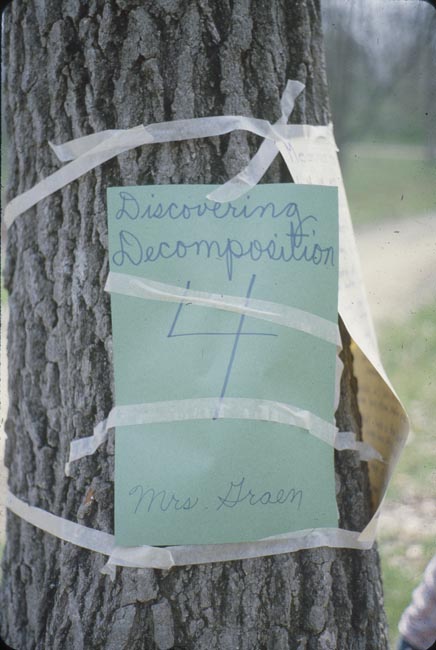 Discovering
Decomposition
4
Mrs. Graen